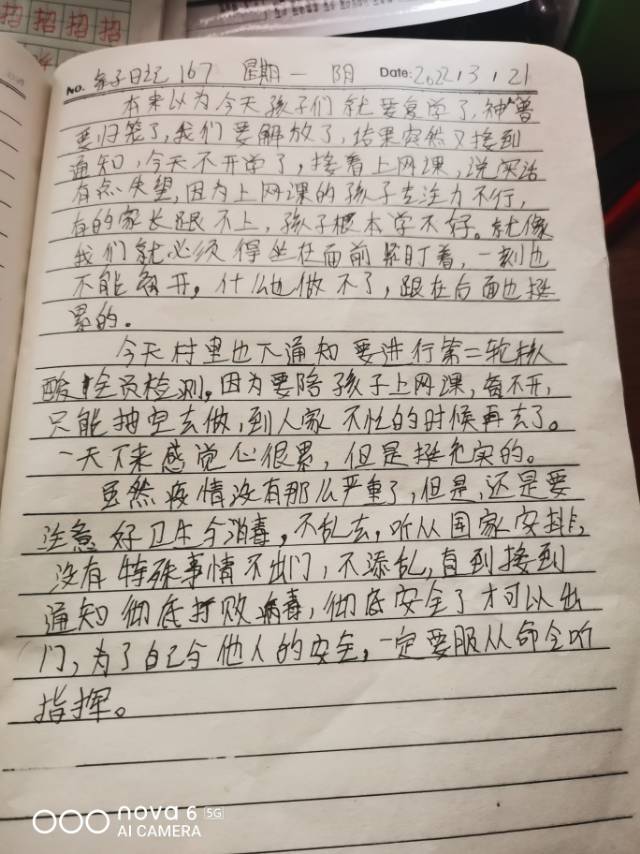 招 招 招 招
No. 亲子日记 167 星期一 阴 Date: 2022.3.21
本来以为今天孩子们就要复学了,神兽
要归笼了,我们要解放了,结果突然又接到
通知,今天不开学了,接着上网课,说实话
有点失望,因为上网课的孩子专注力不行,
有的家长跟不上,孩子根本学不好。就像
我们就必须得坐在面前紧盯着,一刻也
不能离开,什么也做不了,跟在后面也挺
累的。
今天村里也下通知要进行第二轮核
酸全员检测,因为要陪孩子上网课,离不开,
只能抽空去做,到人家不忙的时候再去了。
一天下来感觉心很累,但是挺充实的。
虽然疫情没有那么严重了,但是,还是要
注意好卫生与消毒,不乱去,听从国家安排,
没有特殊事情不出门,不添乱,直到接到
通知彻底打败病毒,彻底安全了才可以出
门,为了自己与他人的安全,一定要服从命令听
指挥。
nova 6 5G
AI CAMERA